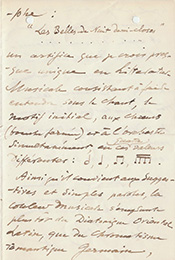 -phe :
"Les Belles de Nuit demi-closes"
un artifice que je crois pres-
que unique en littérature
Musicale consistant à faire
entendre sous le chant, le
motif initial, aux chœurs
(bouche fermée) et à l'orchestre
simultanément en valeurs
différentes :
Ainsi qu'il convient aux sugges-
tives et simples paroles la
couleur Musicale s'inspire
plutôt du Diatonique Oriental
Latin, que du Chromatisme
romantique Germain,